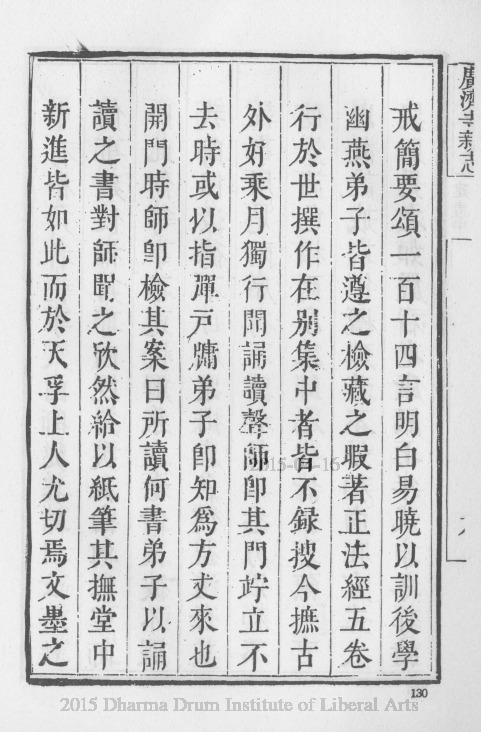 廣濟寺新志
戒簡要頌一百十四言明白易曉以訓後學
幽燕弟子皆遵之檢藏之暇著正法經五卷
行於世撰作在别集中者皆不録搜今摭古
外好乘月獨行聞誦讀聲師卽其門竚立不
去時或以指彈戸牗弟子卽知爲方丈來也
開門時師卽檢其案曰所讀何書弟子以誦
讀之書對師聞之欣然給以紙筆其撫堂中
新進皆如此而於天孚上人尤切焉文墨之
130
2015 Dharma Drum Institute of Liberal Arts